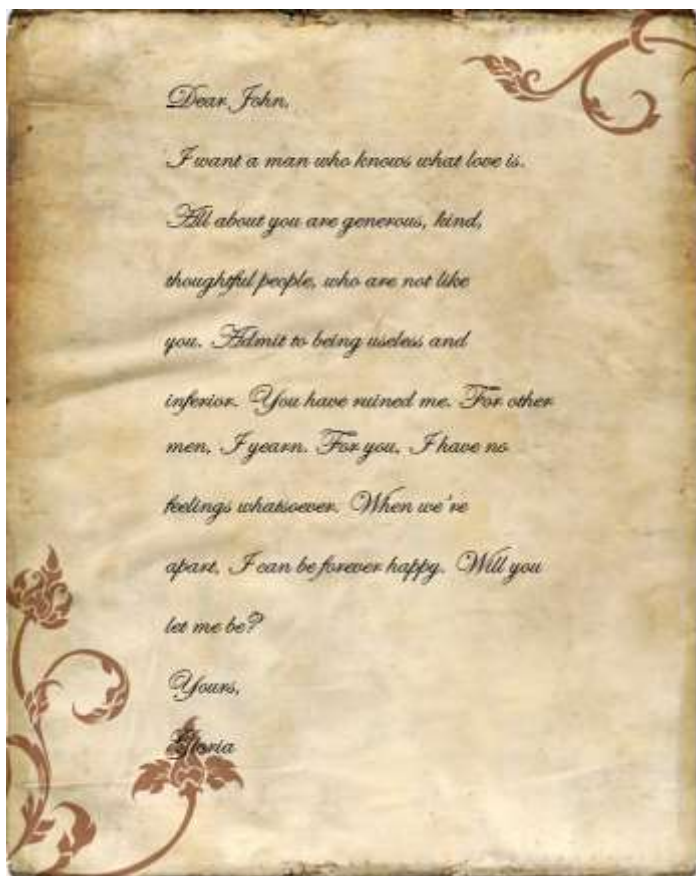 Dear John,
I want a man who knows what love is.
All about you are generous, kind,
thoughtful people, who are not like
you. Admit to being useless and
inferior. You have ruined me. For other
men, I yearn. For you, I have no
feelings whatsoever. When we're
apart, I can be forever happy. Will you
let me be?
Yours,
Gloria